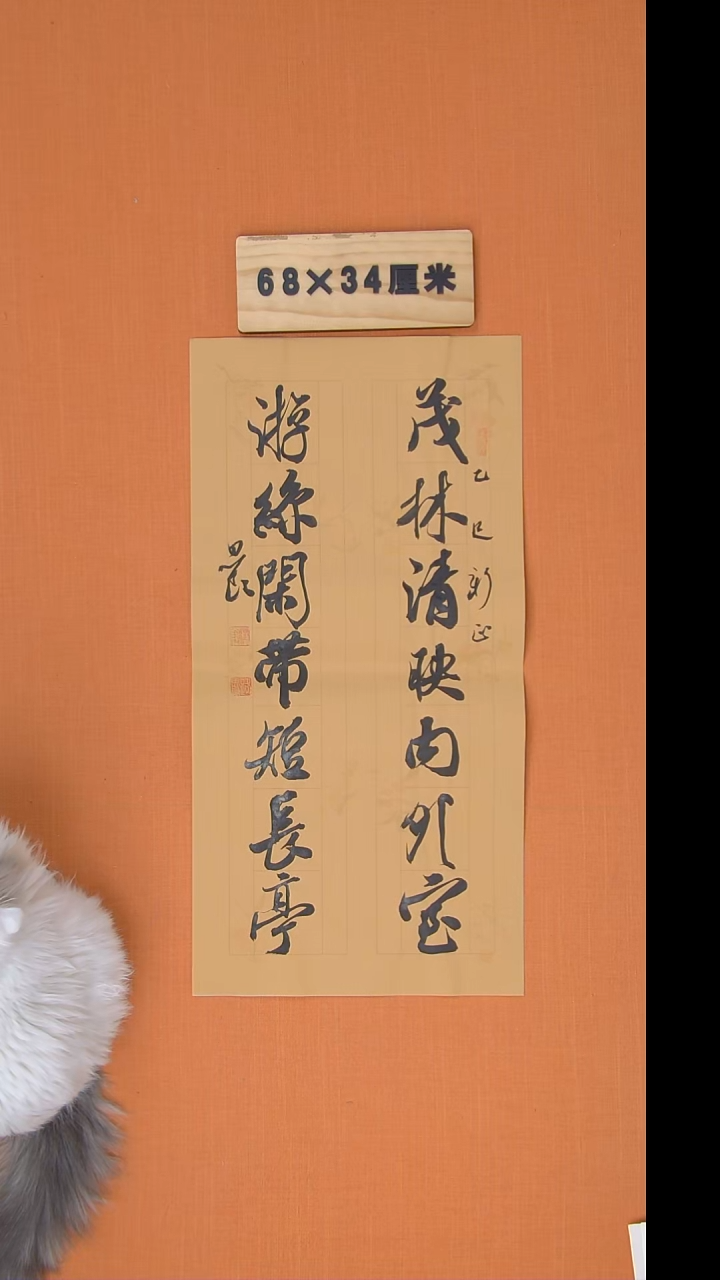 68×34厘米
乙巳新正
茂林清映内外室
游絲閑帶短長亭